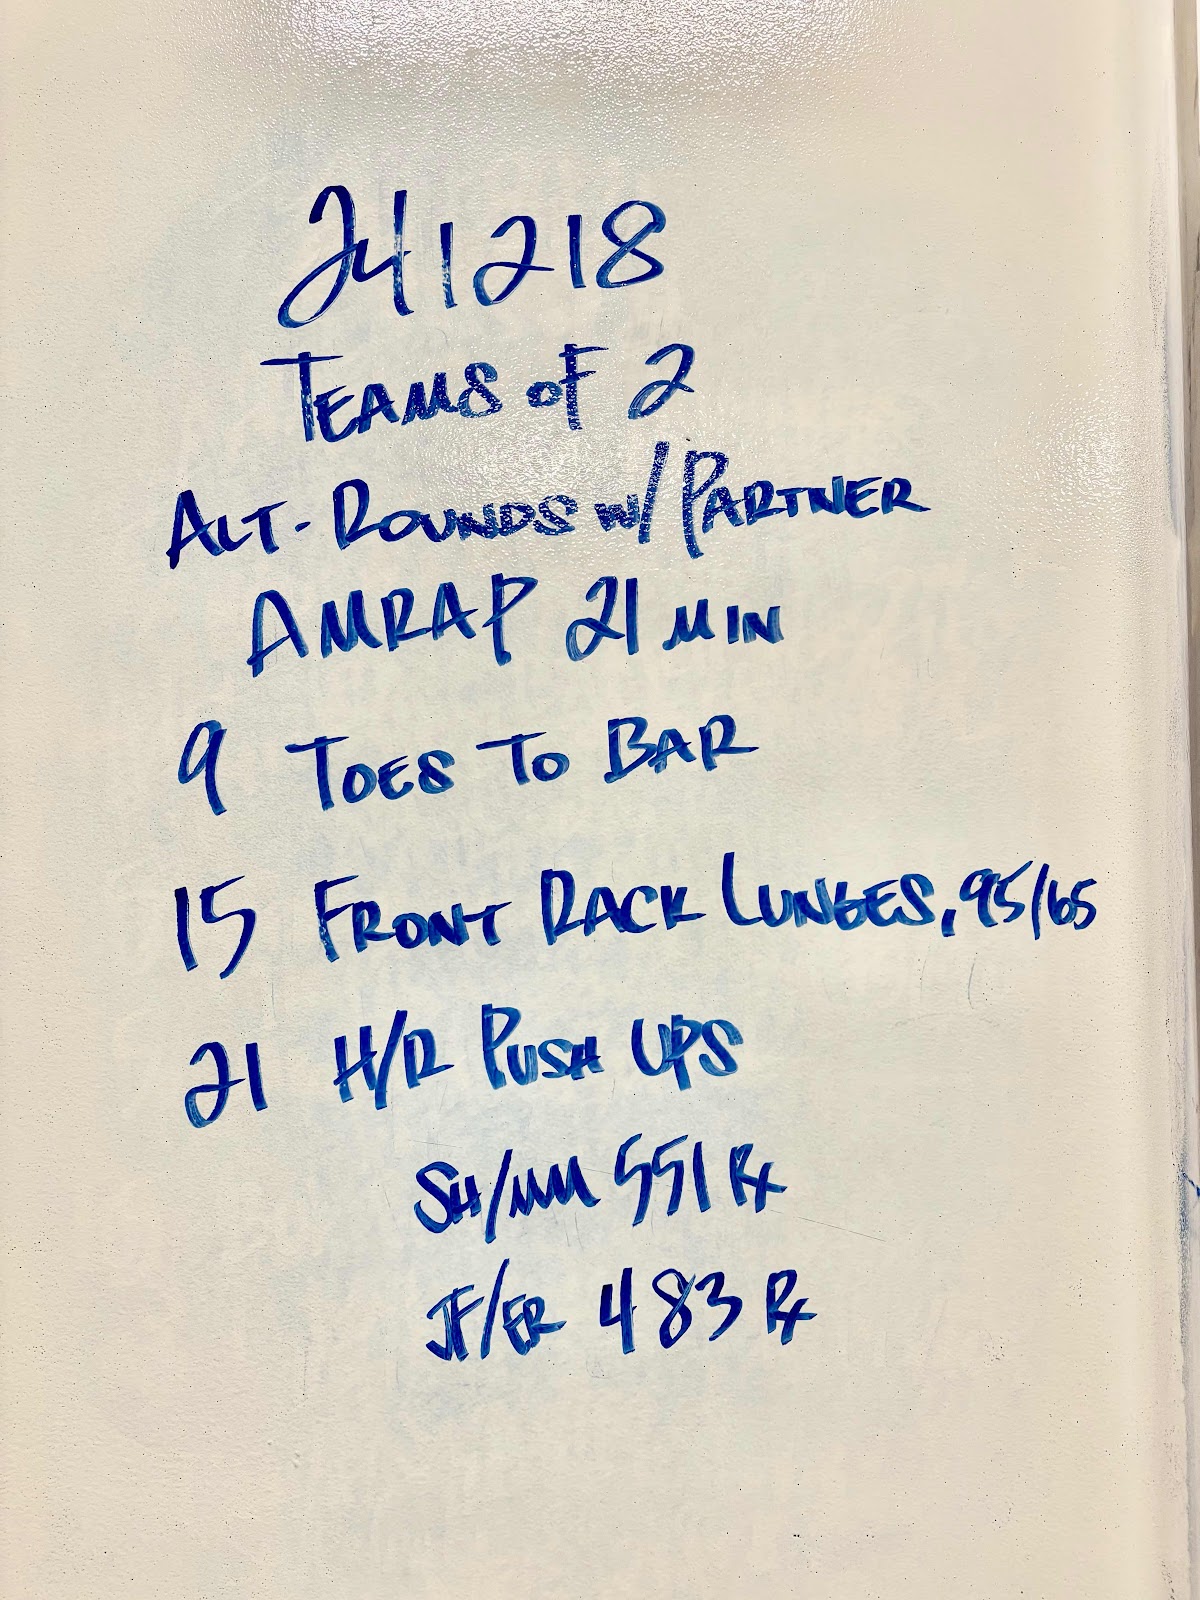 241218
TEAMS OF 2
ALT-ROUNDS W/ PARTNER
AMRAP 21 MIN
9 TOES TO BAR
15 FRONT RACK LUNGES, 95/65
21 H/R PUSH UPS
SH/MM 551 Rx
JF/ER 483 Rx